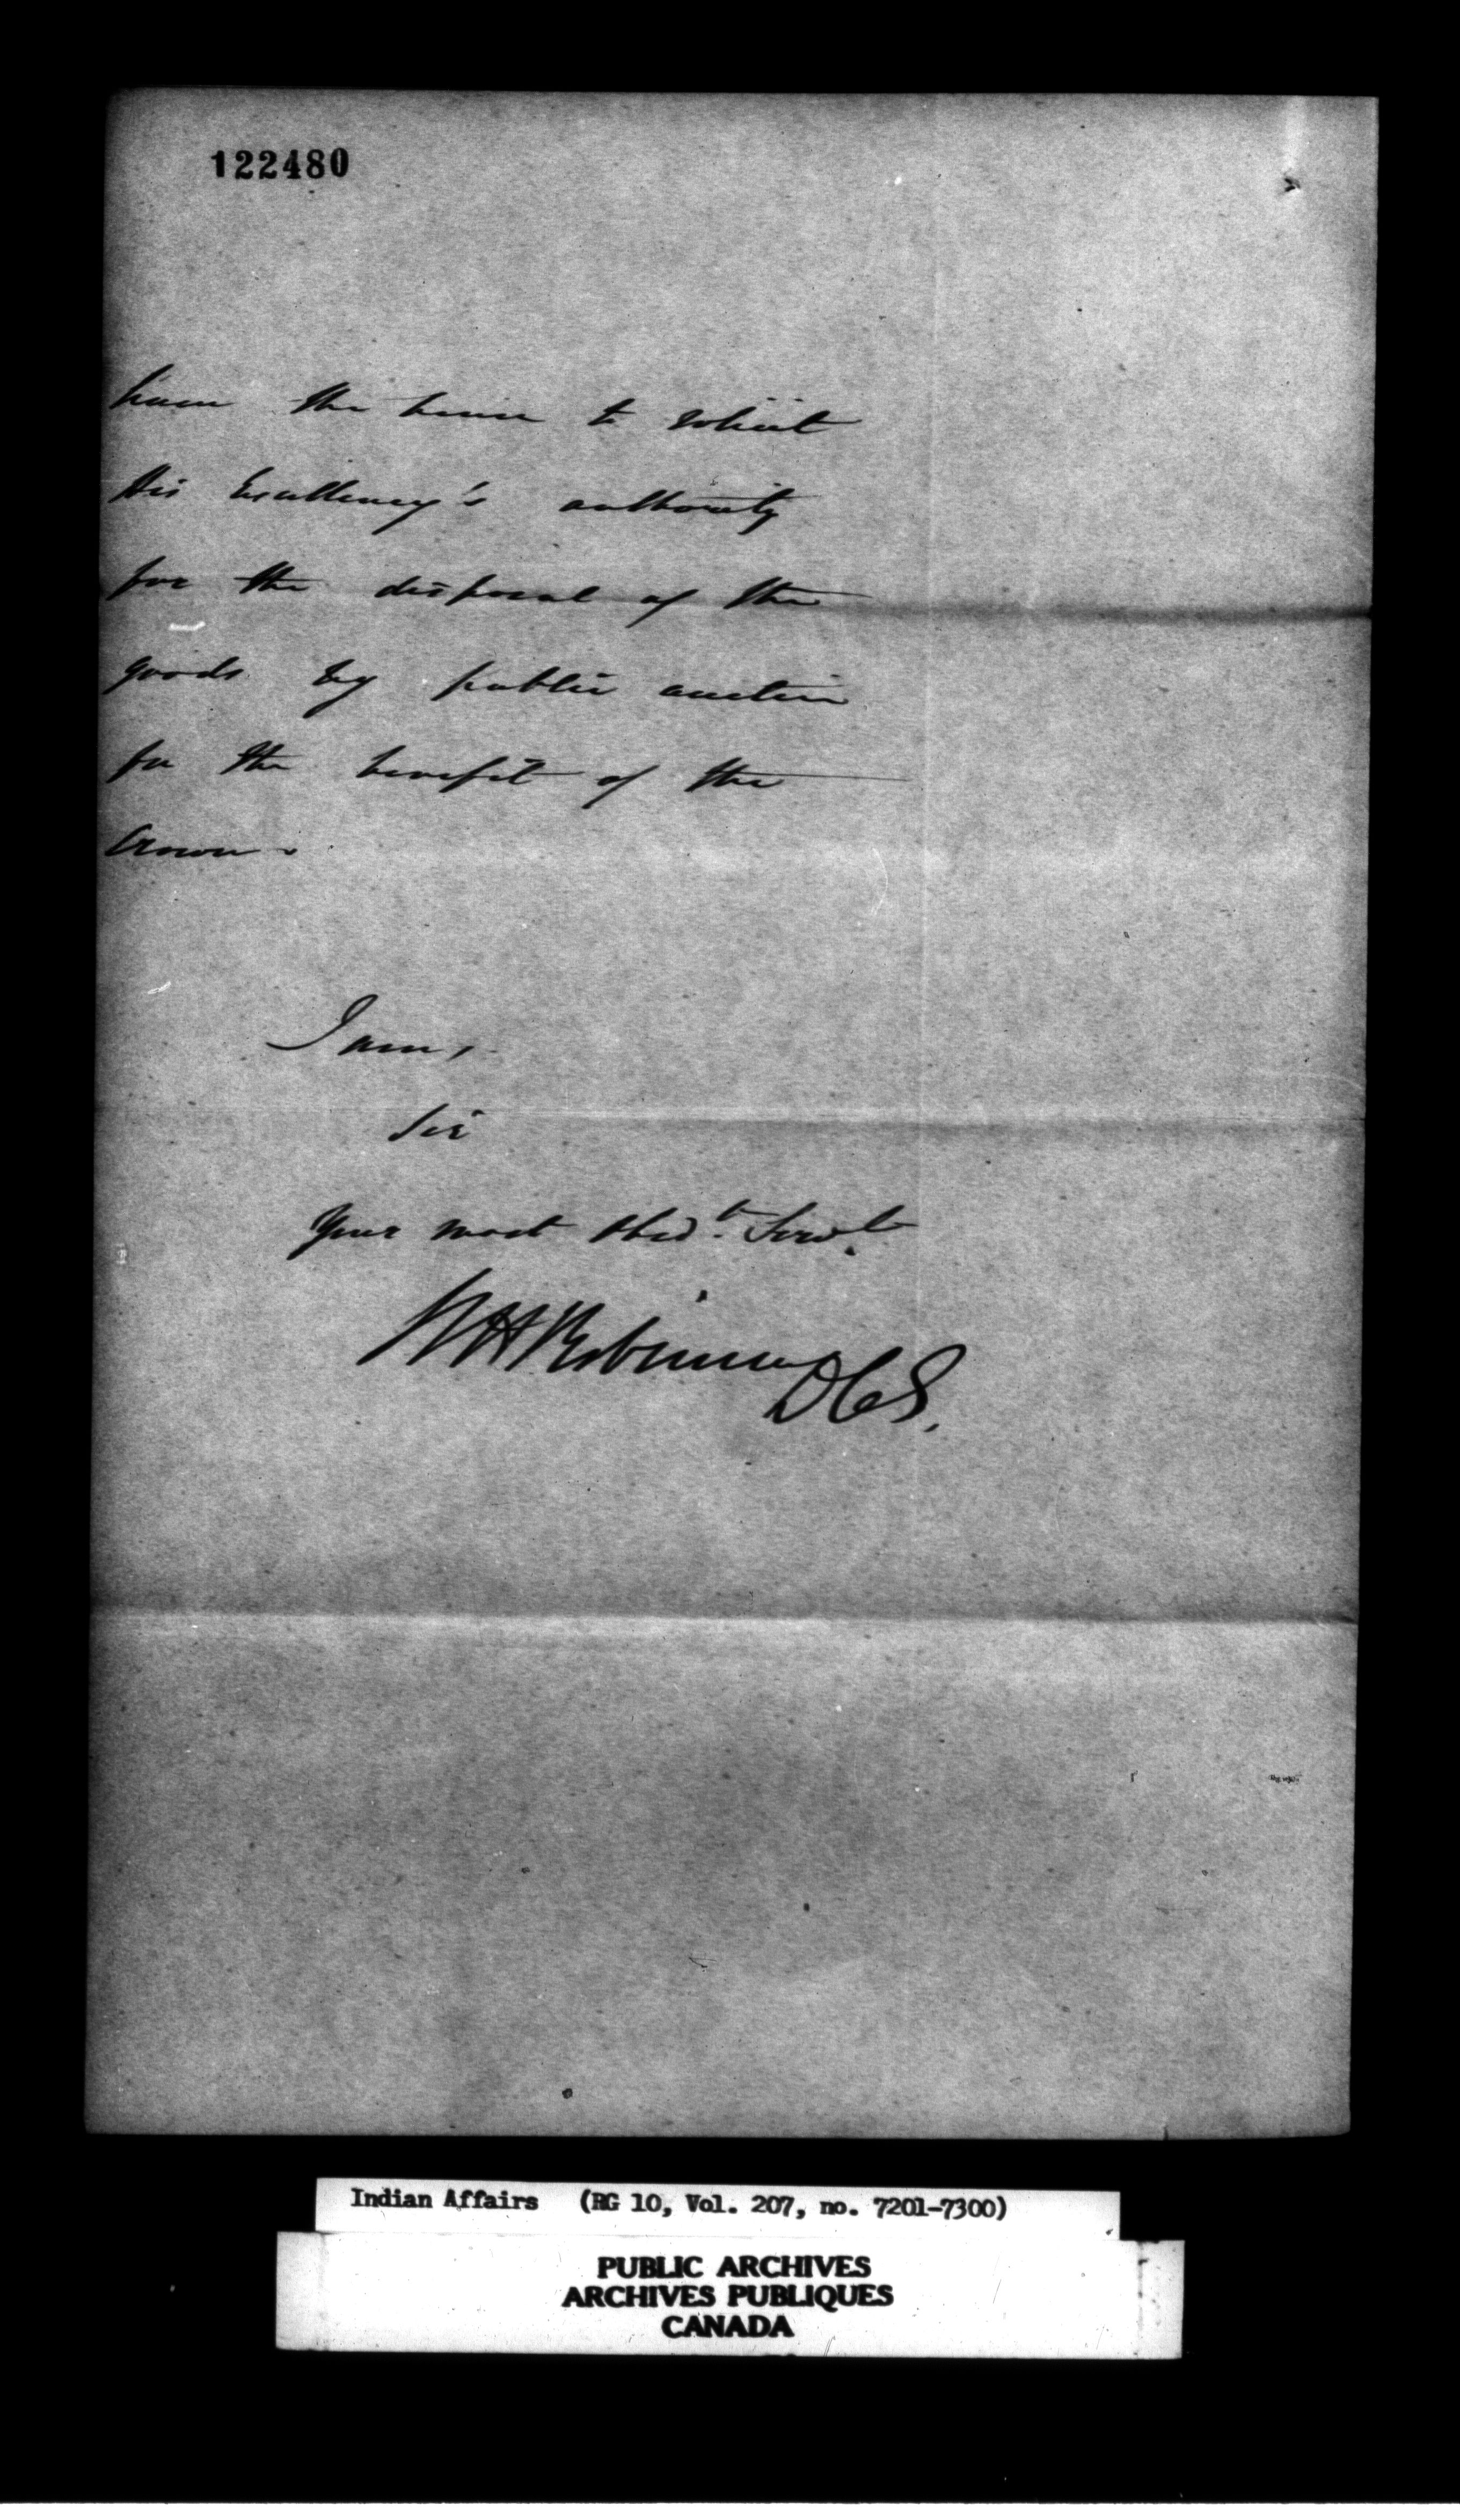 122480
have the honor to solicit
His Excellency's authority
for the disposal of the
goods by public auction
for the benefit of the
Crown.
I am,
Sir
Your most obedt. Servt.
WHRobinson
DCG.
Indian Affairs (RG 10, Vol. 207, no. 7201-7300)
PUBLIC ARCHIVES
ARCHIVES PUBLIQUES
CANADA